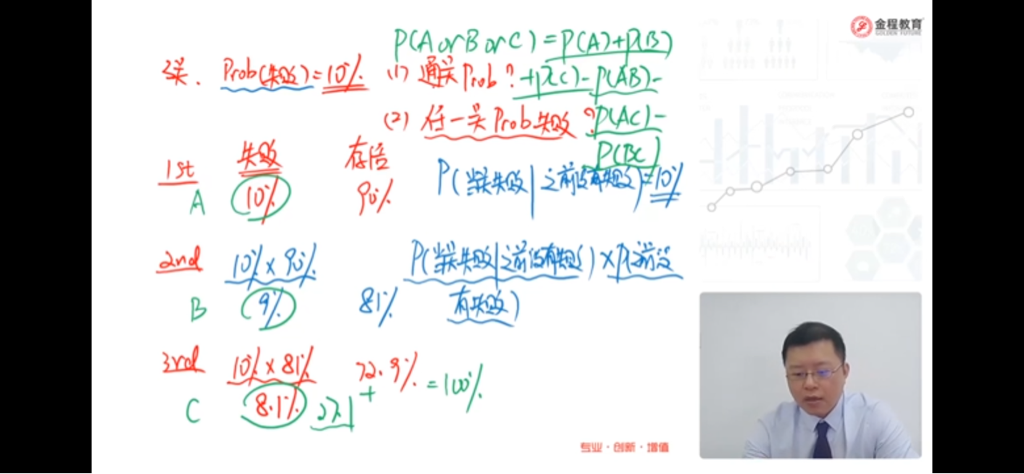 金程教育
GOLDEN FUTURE
P(A or B or C) = P(A)+P(B)
3关. Prob(失败)=10% (1) 通关Prob? +P(C)-P(AB)-
(2) 任一关Prob失败? P(AC)-
P(BC)
1st 失败 存活
A 10% 90% P(当关失败|之前没有失败)=10%
2nd 10%×90% P(当关失败|之前没有失败)×P(之前没
B 9% 81% 有失败)
3rd 10%×81% 72.9% =100%
C 8.1% 27.1 +
专业·创新·增值